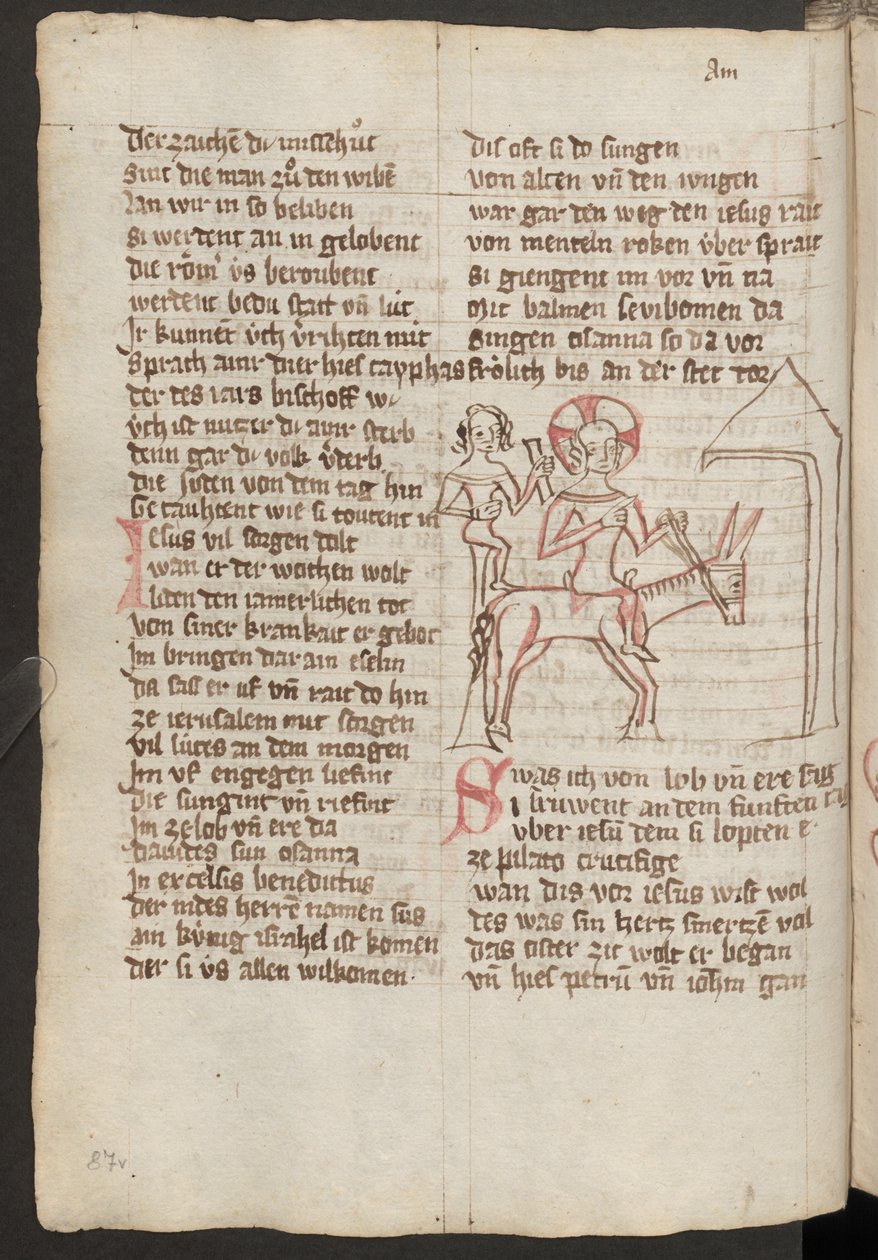 Am
Der zaichē dz missehůt
Sint die man zů den wibē
Lan wir in so beliben
Si werdent an in gelobent
die röm' v̂s beroubent
werdent bedu statt vn̄ lút
Ir kunnēt v́ch v̂rihten nút
Sprach ainr d'ˢ hies cayphas
der des iars bischoff wz
v́ch ist nutzer dz ainr sterb
denn gar dz volk v̂derb
die Juden von dem tag hin
Getrahtent wie si toutent in
Iesus vil sorgen dolt
wan er der wochen wolt
liden den iamerlichen tot
von siner krankait er gebot
Im bringen dar ain eselin
da sas er uf vn̄ rait do hin
ze ierusalem mit sorgen
vil lútes an dem morgen
Im vf engegen liefint
die sungint vn̄ riefint
Im ze lob vn̄ ere da
dauides sun osanna
In excelsis benedictus
der in des herrē namen sus
ain kv́nig israhel ist komen
der si v̂s allen wilkomen
dis oft si do sungen
von alten vn̄ den iungen
war gar den weg den iesus rait
von menteln roken v́ber sprait
si giengent im vor vn̄ na
Mit balmen sevibomen da
singen osanna so da vor
frölich bis an der stet tor
Swas ich von lob vn̄ ere sag
Si schruwent an dem funften tag
vber iesū dem si lopten e
ze pilato crucifige
wan dis vor iesus wist wol
des was sin hertz smertzē vol
das oster zit wolt er began
vn̄ hies petrū vn̄ ioh̄m gan
87v